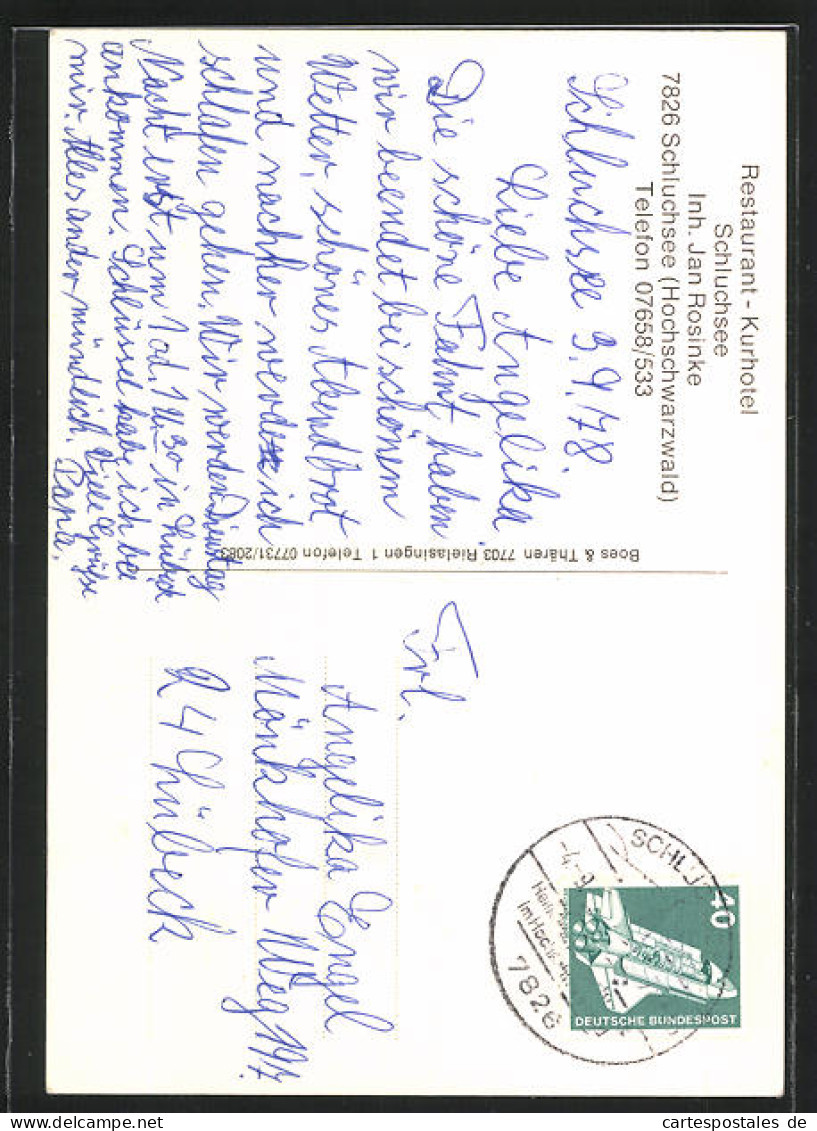 Restaurant - Kurhotel
Schluchsee
Inh. Jan Rosinke
7826 Schluchsee (Hochschwarzwald)
Telefon 07658/533
Schluchsee 3.9.78.
Liebe Angelika.
Die schöne Fahrt haben
wir beendet bei schönem
Wetter, schönes Abendbrot
und nachher werde ich
schlafen gehen. Wir werden Dienstag
Nacht erst um 1 od. 1 U.30 in Lübeck
ankommen. Schlüssel habe ich bei
mir. Alles ander mündlich. Viele Grüße
Papa.
Boes & Thären 7703 Rielasingen 1 Telefon 07731/2083
Frl.
Angelika Engel
Mönkhofer Weg 197.
24 Lübeck
40
DEUTSCHE BUNDESPOST
7826
cartespostales de